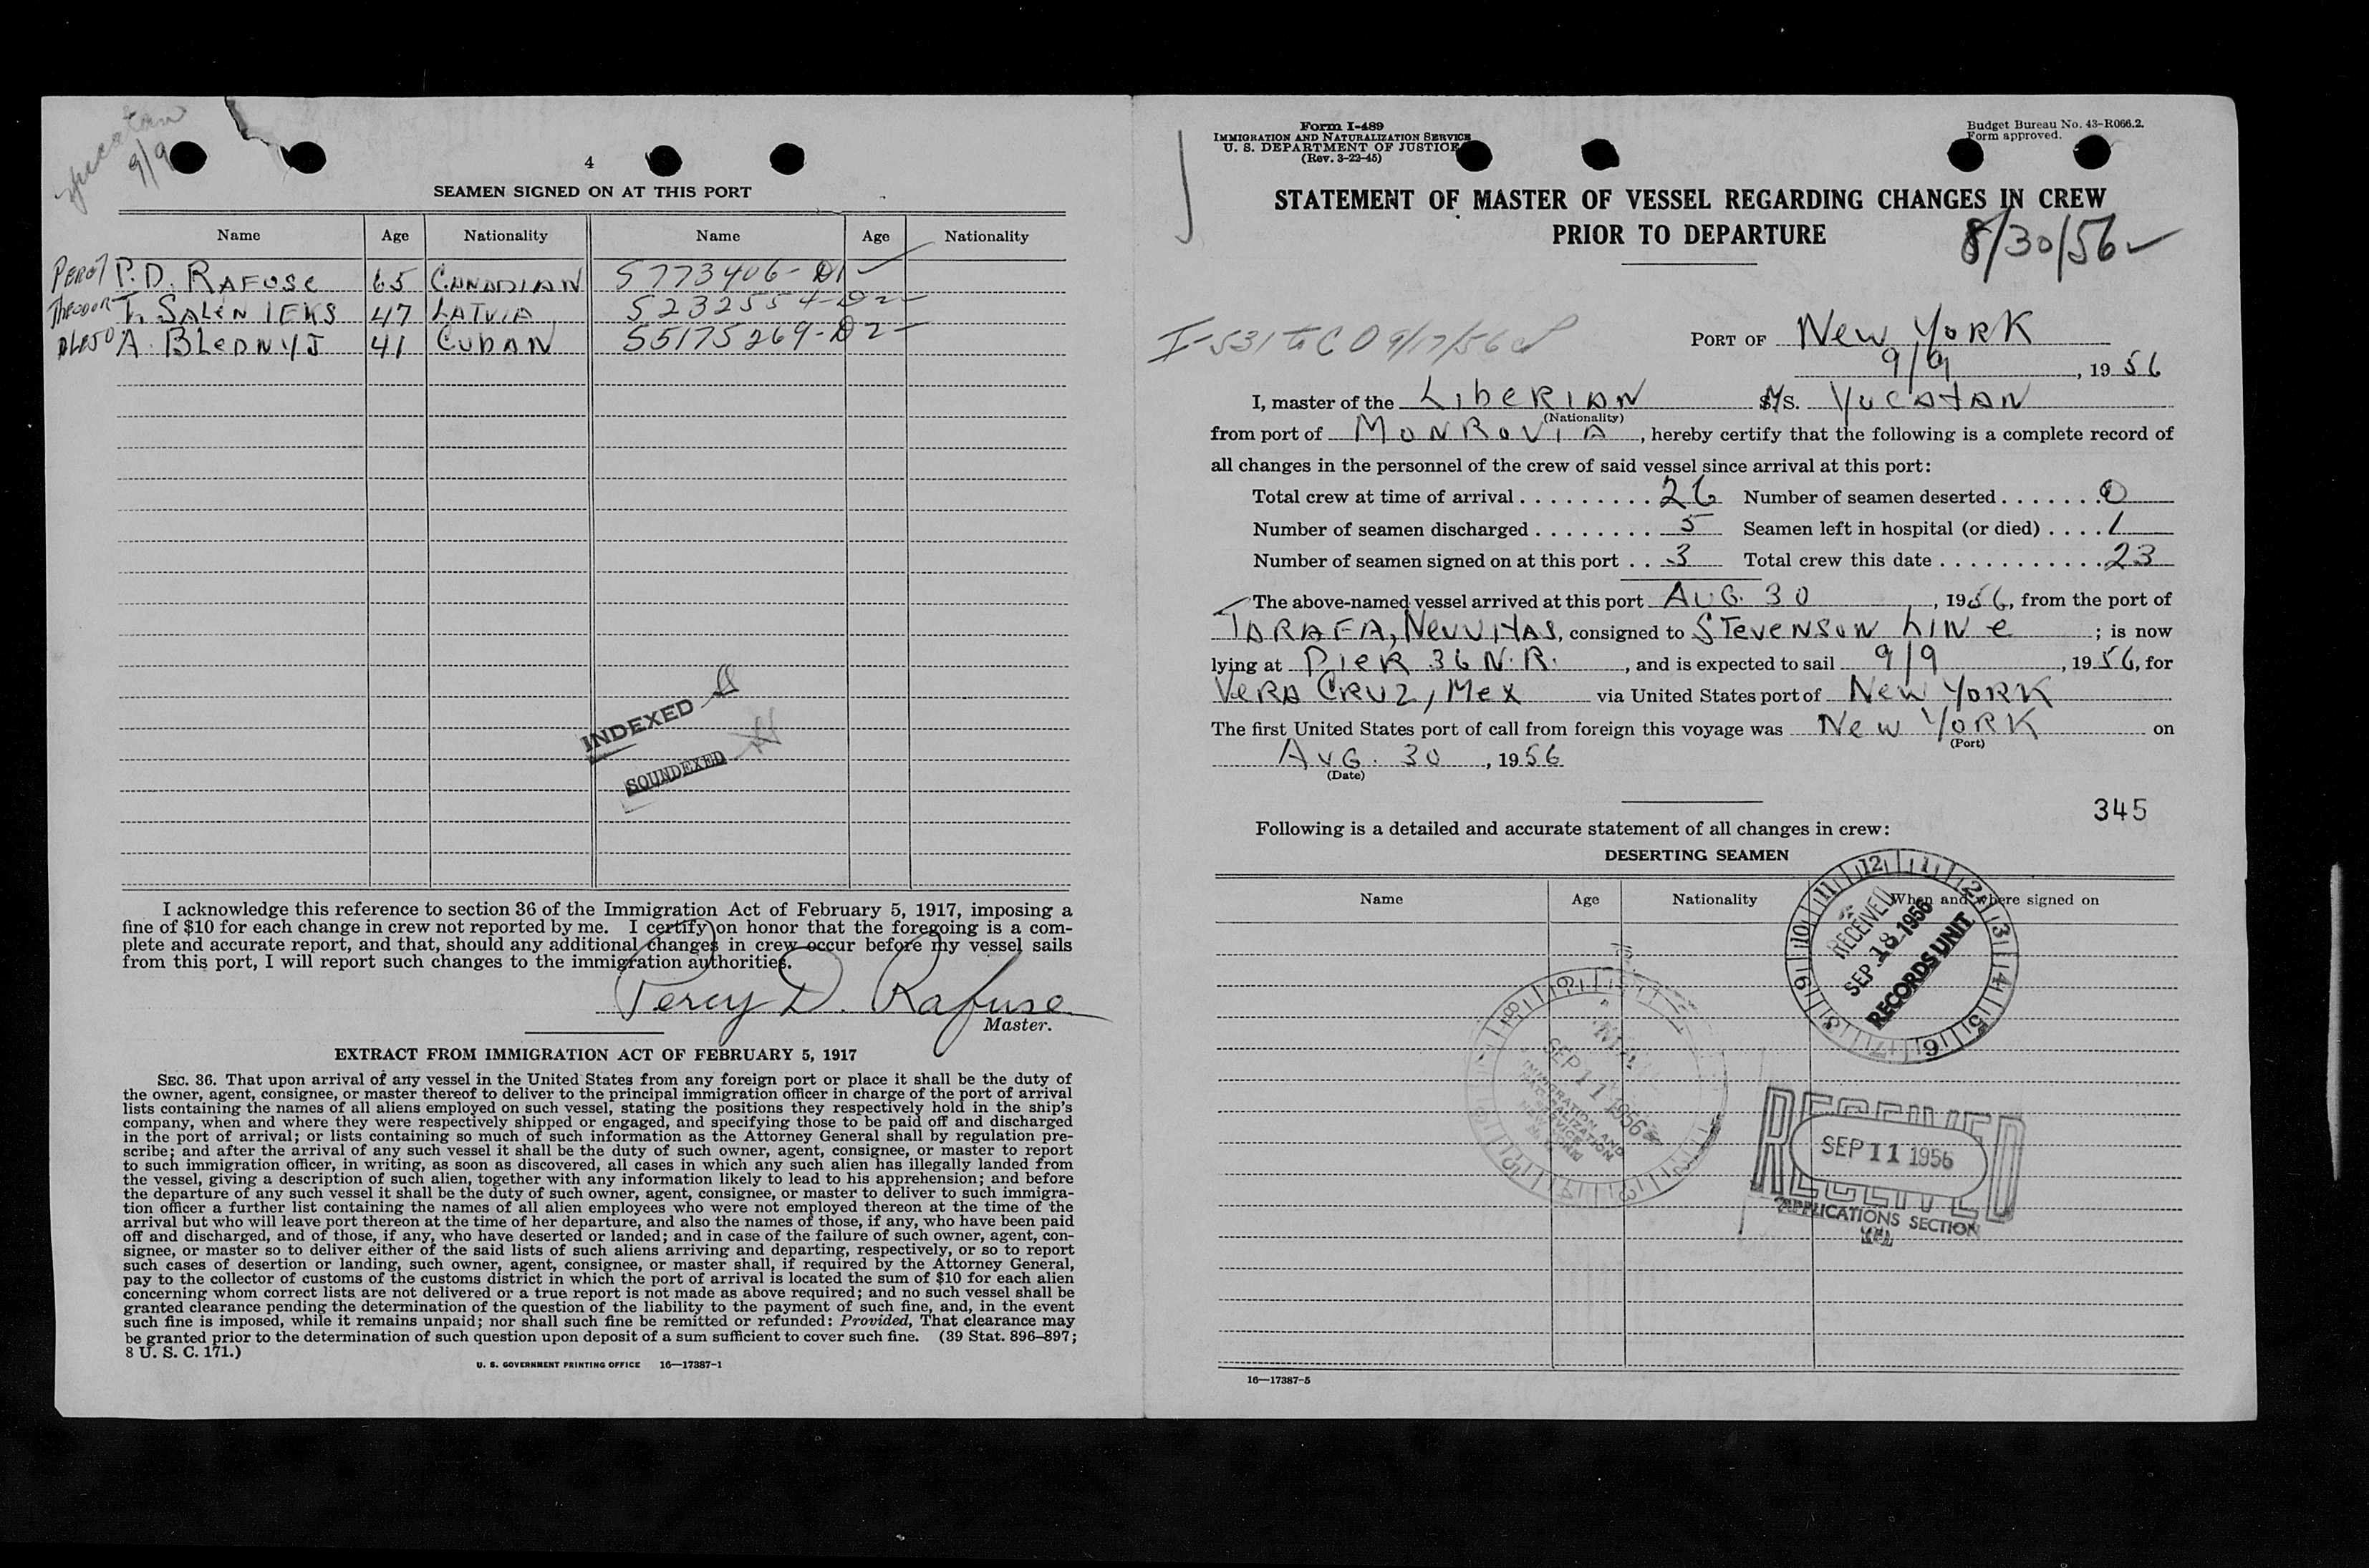 Yucatan
9/9
4
SEAMEN SIGNED ON AT THIS PORT
Name Age Nationality Name Age Nationality
Percy P. D. RAFUSE 65 CANADIAN 5773406-D1
THEODOR T. SALENIEKS 47 LATVIA 5232554-D2
A. BLEDNYJ 41 CUBAN 55175269-D2
INDEXED
SOUNDEXED
I acknowledge this reference to section 36 of the Immigration Act of February 5, 1917, imposing a
fine of $10 for each change in crew not reported by me. I certify on honor that the foregoing is a com-
plete and accurate report, and that, should any additional changes in crew occur before my vessel sails
from this port, I will report such changes to the immigration authorities.
Percy D. Rafuse
Master.
EXTRACT FROM IMMIGRATION ACT OF FEBRUARY 5, 1917
SEC. 36. That upon arrival of any vessel in the United States from any foreign port or place it shall be the duty of
the owner, agent, consignee, or master thereof to deliver to the principal immigration officer in charge of the port of arrival
lists containing the names of all aliens employed on such vessel, stating the positions they respectively hold in the ship's
company, when and where they were respectively shipped or engaged, and specifying those to be paid off and discharged
in the port of arrival; or lists containing so much of such information as the Attorney General shall by regulation pre-
scribe; and after the arrival of any such vessel it shall be the duty of such owner, agent, consignee, or master to report
to such immigration officer, in writing, as soon as discovered, all cases in which any such alien has illegally landed from
the vessel, giving a description of such alien, together with any information likely to lead to his apprehension; and before
the departure of any such vessel it shall be the duty of such owner, agent, consignee, or master to deliver to such immigra-
tion officer a further list containing the names of all alien employees who were not employed thereon at the time of the
arrival but who will leave port thereon at the time of her departure, and also the names of those, if any, who have been paid
off and discharged, and of those, if any, who have deserted or landed; and in case of the failure of such owner, agent, con-
signee, or master so to deliver either of the said lists of such aliens arriving and departing, respectively, or so to report
such cases of desertion or landing, such owner, agent, consignee, or master shall, if required by the Attorney General,
pay to the collector of customs of the customs district in which the port of arrival is located the sum of $10 for each alien
concerning whom correct lists are not delivered or a true report is not made as above required; and no such vessel shall be
granted clearance pending the determination of the question of the liability to the payment of such fine, and, in the event
such fine is imposed, while it remains unpaid; nor shall such fine be remitted or refunded: Provided, That clearance may
be granted prior to the determination of such question upon deposit of a sum sufficient to cover such fine. (39 Stat. 896–897;
8 U. S. C. 171.)
U. S. GOVERNMENT PRINTING OFFICE 16—17387-1
Form I-489
IMMIGRATION AND NATURALIZATION SERVICE
U. S. DEPARTMENT OF JUSTICE
(Rev. 3-22-45)
Budget Bureau No. 43-R066.2.
Form approved.
STATEMENT OF MASTER OF VESSEL REGARDING CHANGES IN CREW
PRIOR TO DEPARTURE
8/30/56
I-531 to CO 9/17/56
PORT OF New YORK
9/9, 1956
I, master of the LibERIAN M/S. YUCATAN
(Nationality)
from port of MONROVIA, hereby certify that the following is a complete record of
all changes in the personnel of the crew of said vessel since arrival at this port:
Total crew at time of arrival . . . . . . . . . 26 Number of seamen deserted . . . . . . . 0
Number of seamen discharged . . . . . . . . 5 Seamen left in hospital (or died) . . . . 1
Number of seamen signed on at this port . . 3 Total crew this date . . . . . . . . . . . . 23
The above-named vessel arrived at this port AUG. 30, 1956, from the port of
TARAFA, NEUVITAS, consigned to STEVENSON LINE; is now
lying at PIER 36 N.R., and is expected to sail 9/9, 1956, for
VERA CRUZ, MEX via United States port of New YORK
The first United States port of call from foreign this voyage was New YORK on
(Port)
AUG. 30, 1956
(Date)
345
Following is a detailed and accurate statement of all changes in crew:
DESERTING SEAMEN
Name Age Nationality When and where signed on
RECEIVED
SEP 18 1956
RECORDS UNIT
SEP 11 1956
IMMIGRATION AND
NATURALIZATION
SERVICE
RECEIVED
SEP 11 1956
APPLICATIONS SECTION
16—17387-5